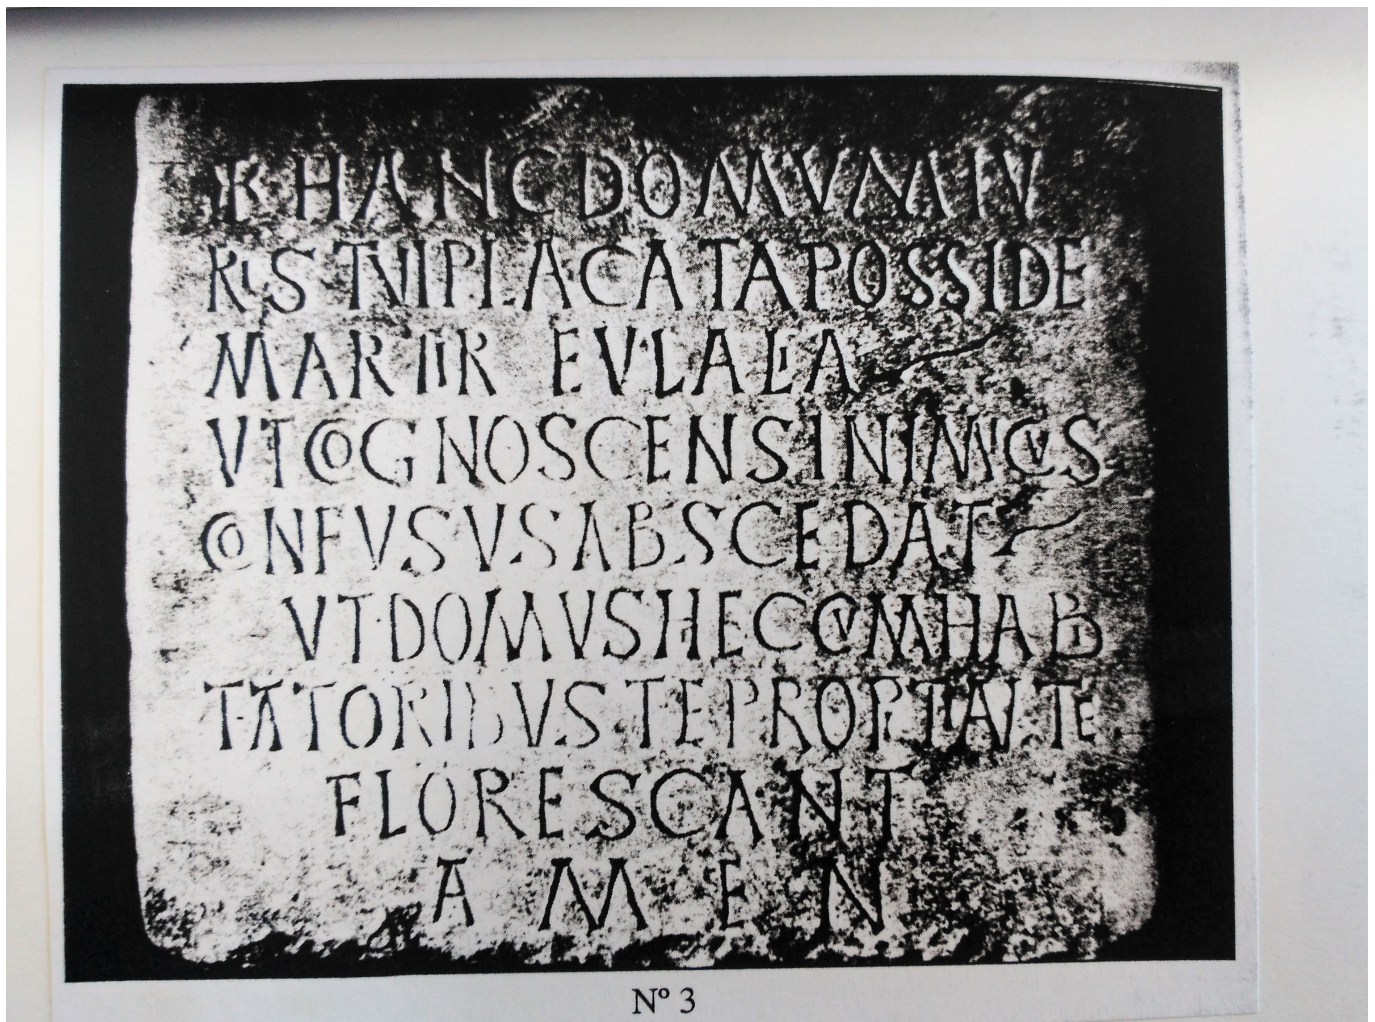 ⳩ HANC DOMUM IU
RIS TUI PLACATA POSSIDE
MARTIR EULALIA
UT COGNOSCENS INIMICUS
CONFUSUS ABSCEDAT
UT DOMUS HEC CUM HABI
TATORIBUS TE PROPITIANTE
FLORESCANT
AMEN
Nº 3